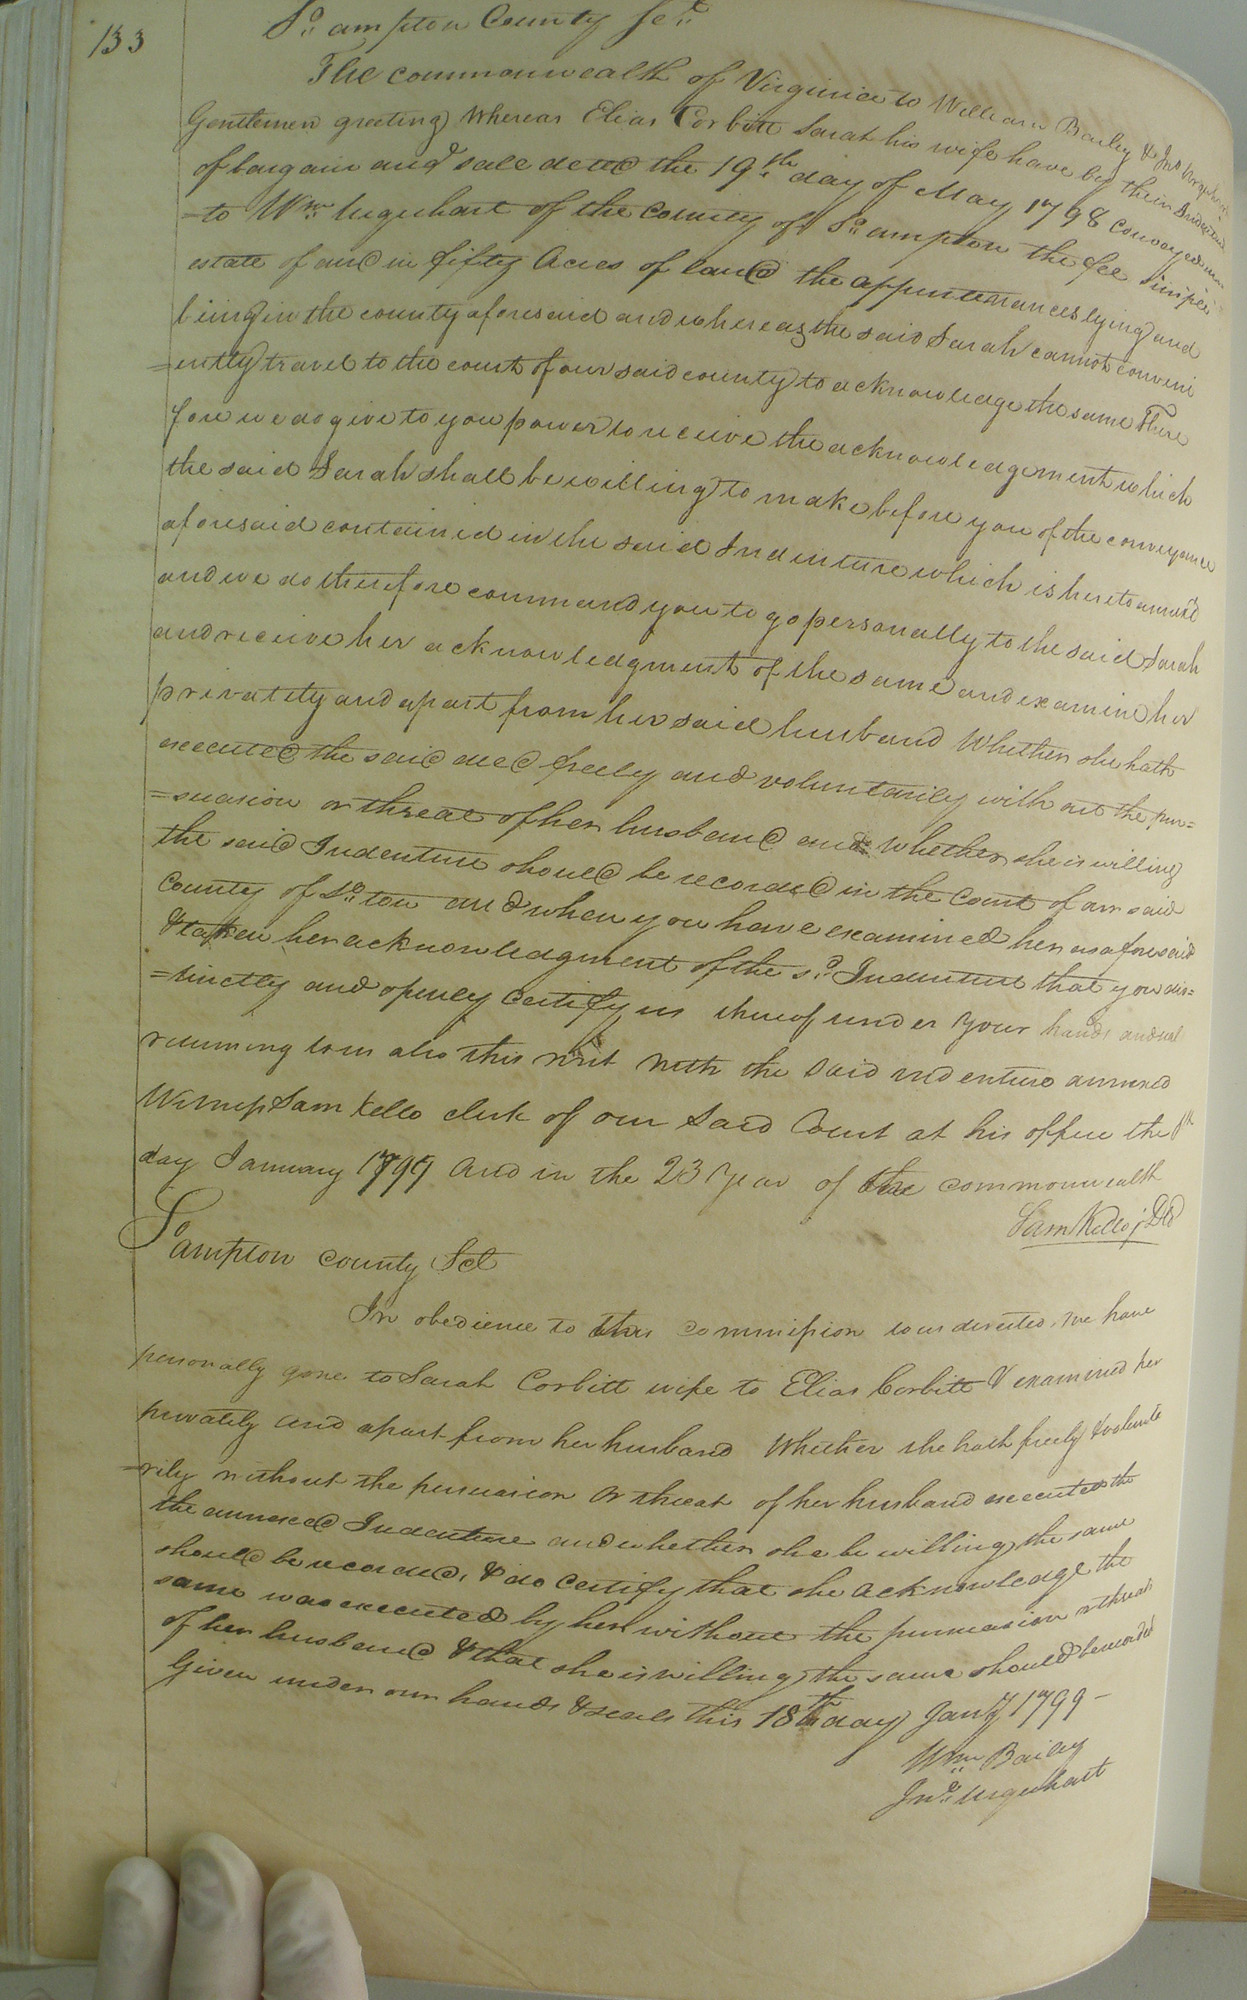 133
So. ampton County Sct.
The commonwealth of Virginia to William Bailey & Jno Urquhart
Gentlemen greeting Whereas Elias Corbitt Sarah his wife have by their Indenture
of bargain and sale dated the 19th day of May 1798 conveyed un
=to Wm. Urquhart of the county of So. ampton the fee simple
estate of and in fifty Acres of land the appurtenances lying and
being in the county aforesaid and whereas the said Sarah cannot conveni
=ently travel to the court of our said county to acknowledge the same There
fore we do give to you power to receive the acknowledgement which
the said Sarah shall be willing to make before you of the conveyance
aforesaid contained in the said Indenture which is hereto annexed
and we do therefore command you to go personally to the said Sarah
and receive her acknowledgment of the same and examine her
privately and apart from her said husband Whether she hath
executed the said deed freely and voluntarily with out the pur=
=suasion or threat of her husband and whether she is willing
the said Indenture should be recorded in the Court of our said
County of So. ton and when you have examined her as aforesaid
& taken her acknowledgment of the sd. Indenture that you dis=
=tinctly and openly certify us thereof under your hands and seal
returning to us also this writ with the said indenture annexed
Witness Sam Kello clerk of our said Court at his office the 8th
day January 1799 and in the 23 year of the commonwealth
Sam Kello j DC
So ampton county Sct
In obedience to this commission to us directed, we have
personally gone to Sarah Corbitt wife to Elias Corbitt & examined her
privately and apart from her husband Whether she hath freely & volunta
=rily without the persuasion or threat of her husband executed the
the annexed Indenture and whether she be willing the same
should be recorded, & do certify that she acknowledge the
same was executed by her without the pursuasion or threat
of her husband & that she is willing the same should be recorded
Given under our hands & seals this 18th day Jany 1799 -
Wm Bailey
Jno. Urquhart